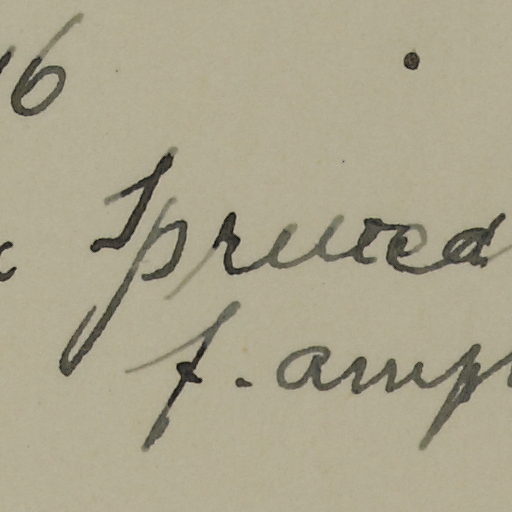 16
Sprucea
f. amp